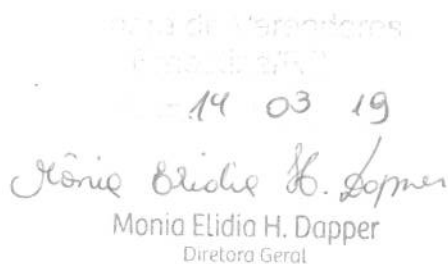 de Vereadores
14 03 19
Mônia Elidia H. Dapper
Monia Elidia H. Dapper
Diretora Geral